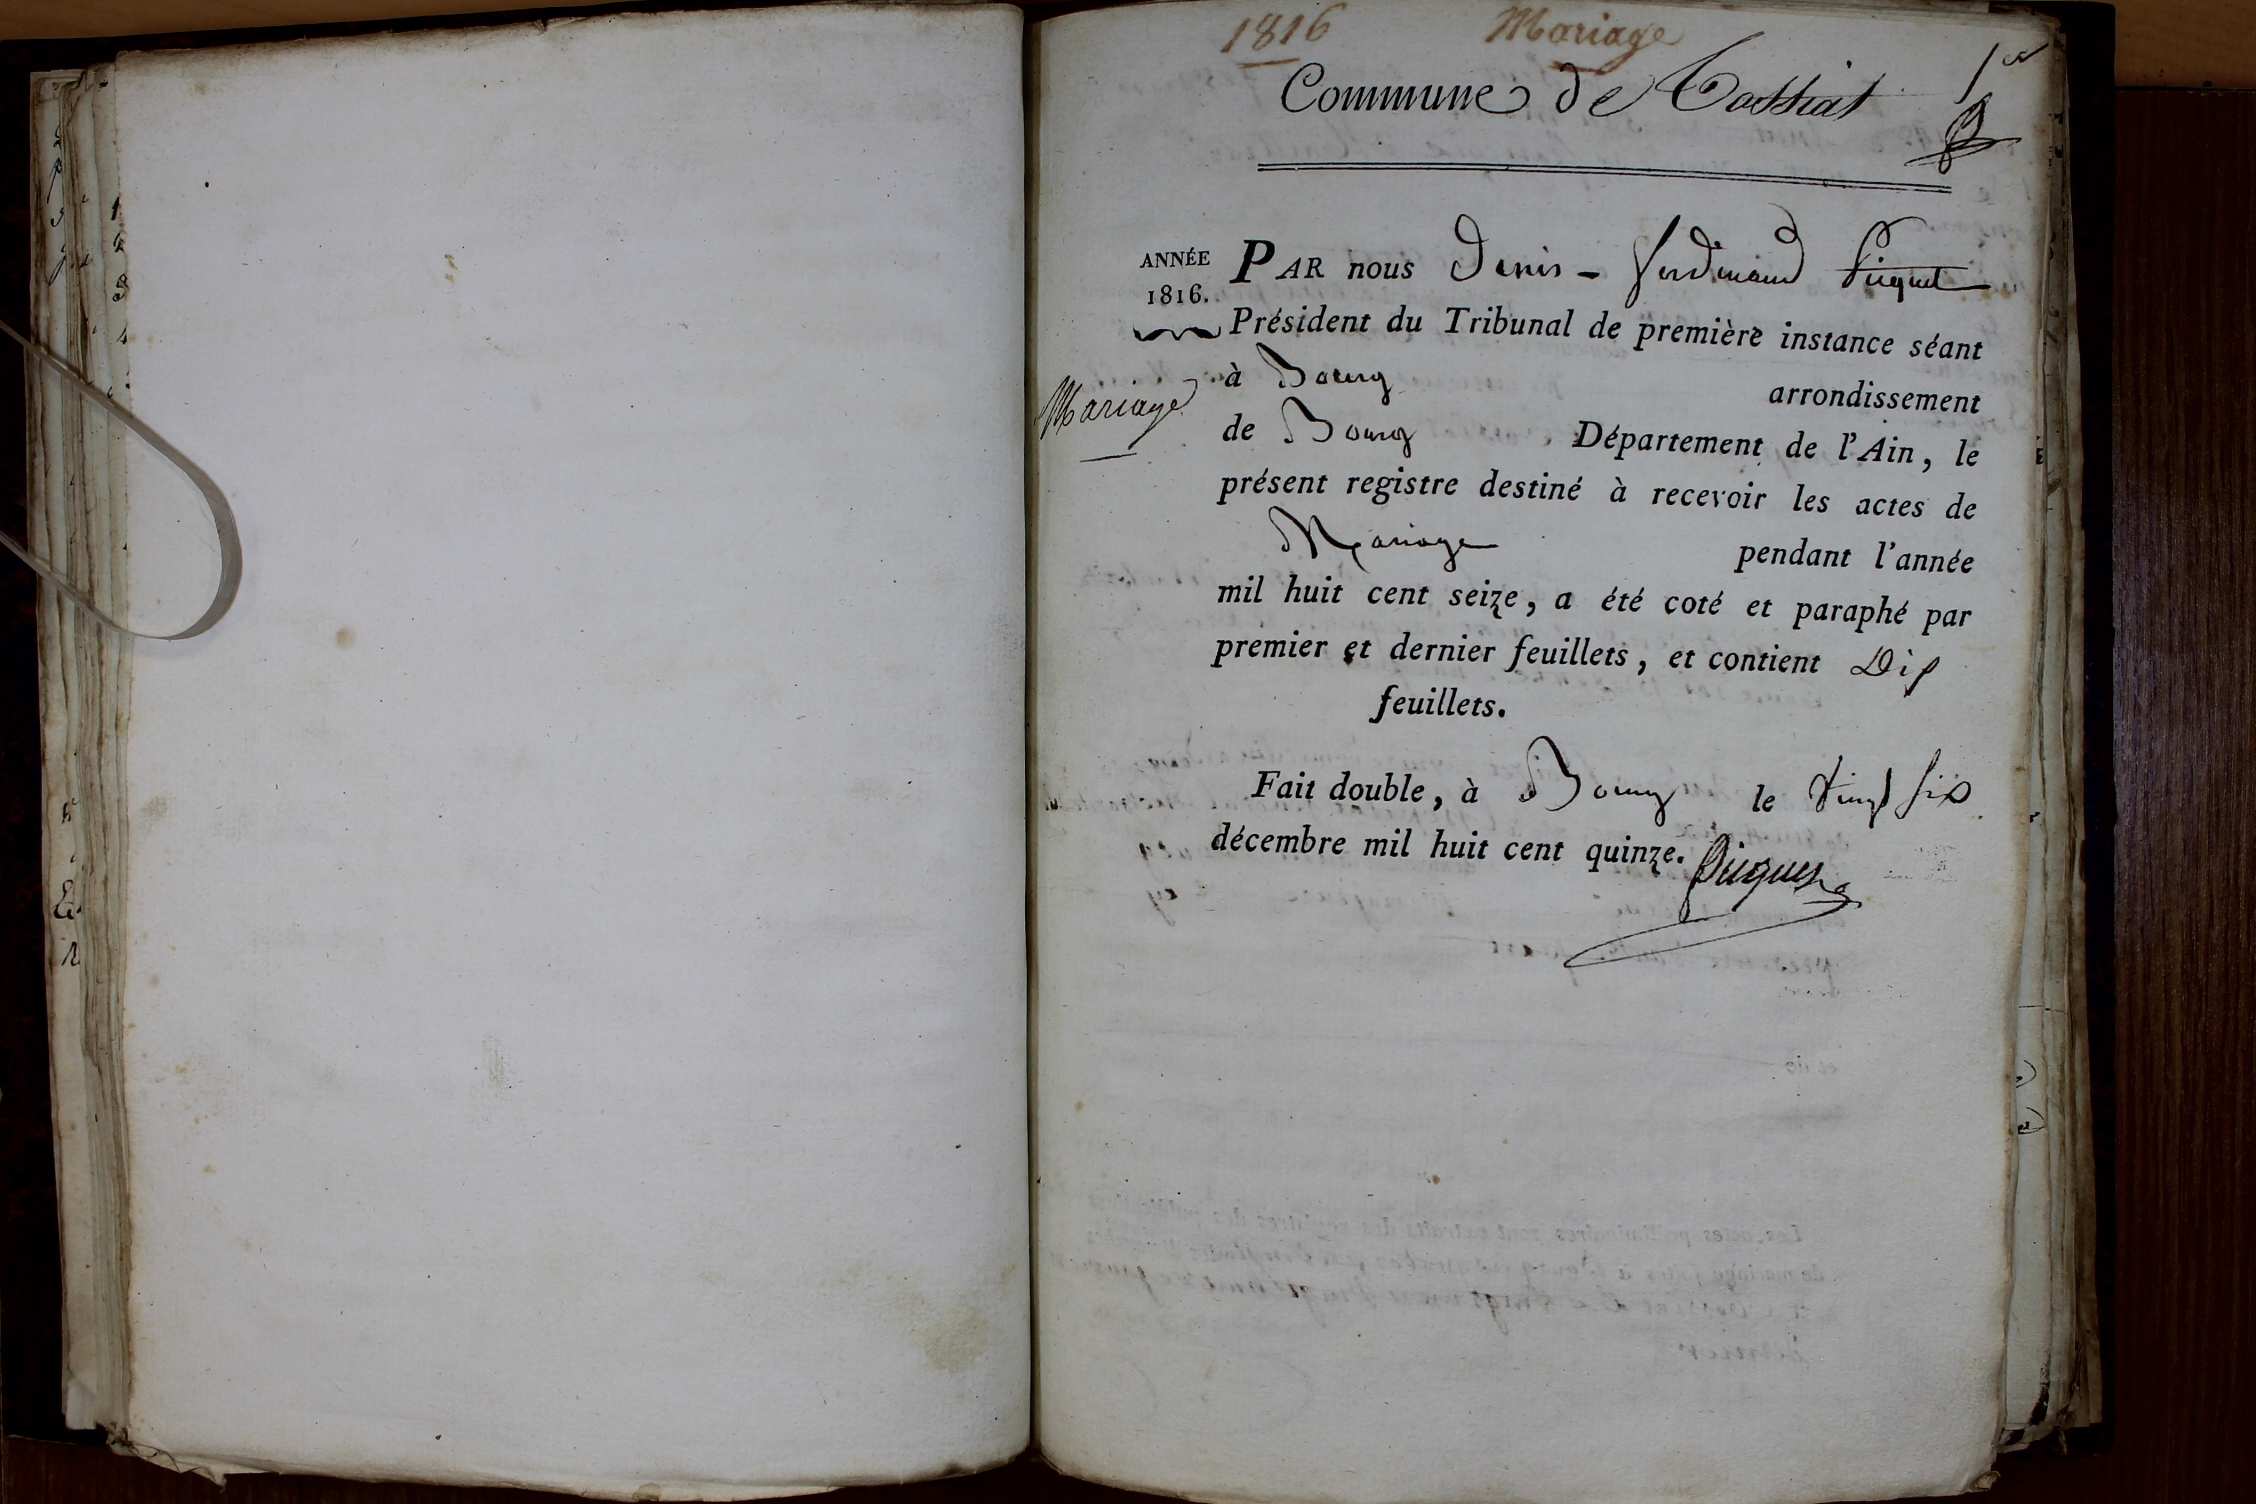 1816 Mariage
Commune de Tossiat
1er
ANNÉE
1816.
Mariage
PAR nous Denis - ferdinand Piquet
Président du Tribunal de première instance séant
à Bourg arrondissement
de Bourg Département de l'Ain, le
présent registre destiné à recevoir les actes de
Mariage pendant l'année
mil huit cent seize, a été coté et paraphé par
premier et dernier feuillets, et contient Dix
feuillets.
Fait double, à Bourg le vingt six
décembre mil huit cent quinze.
Piquet